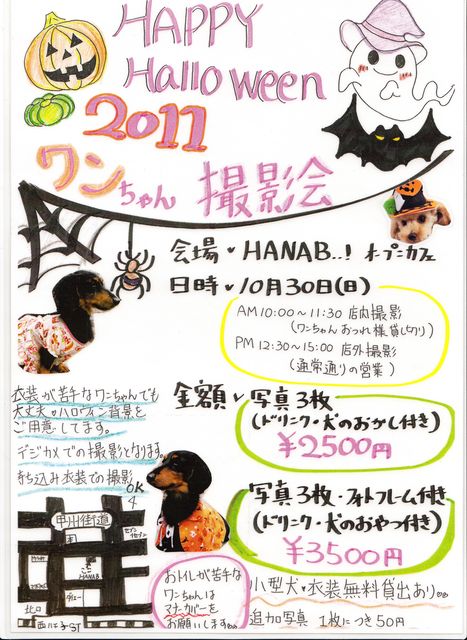 HAPPY
Halloween
2011
ワンちゃん 撮影会
会場 HANAB..! オープンカフェ
日時 10月30日(日)
AM 10:00〜11:30 店内撮影
(ワンちゃんおつれ様貸し切り)
PM 12:30〜15:00 店外撮影
(通常通りの営業)
衣装が苦手なワンちゃんでも
大丈夫 ハロウィン背景を
ご用意してます。
デジカメでの撮影となります。
持ち込み衣装での撮影
OK
金額 写真3枚
(ドリンク・犬のおかし付き)
¥2500円
写真3枚・フォトフレーム付き
(ドリンク・犬のおやつ付き)
¥3500円
甲州街道
セブンイレブン
ここ
HANAB
北口
西八王子ST
おトイレが苦手な
ワンちゃんは
マナーカバーを
お願いします
小型犬 衣装無料貸出あり
追加写真 1枚につき50円